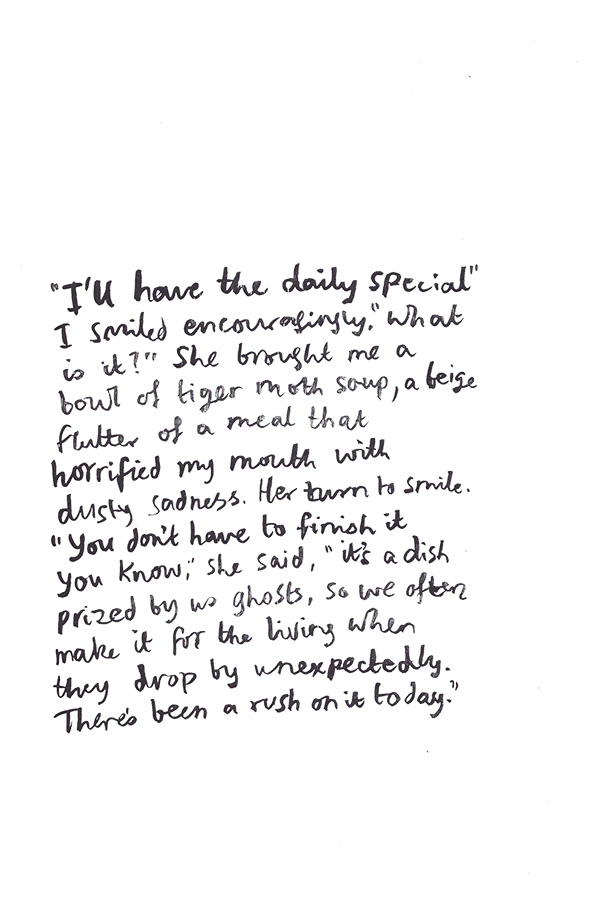 "I'll have the daily special"
I smiled encouragingly, "What
is it?" She brought me a
bowl of tiger moth soup, a beige
flutter of a meal that
horrified my mouth with
dusty sadness. Her turn to smile.
"You don't have to finish it
you know," she said, "it's a dish
prized by us ghosts, so we often
make it for the living when
they drop by unexpectedly.
There's been a rush on it today."